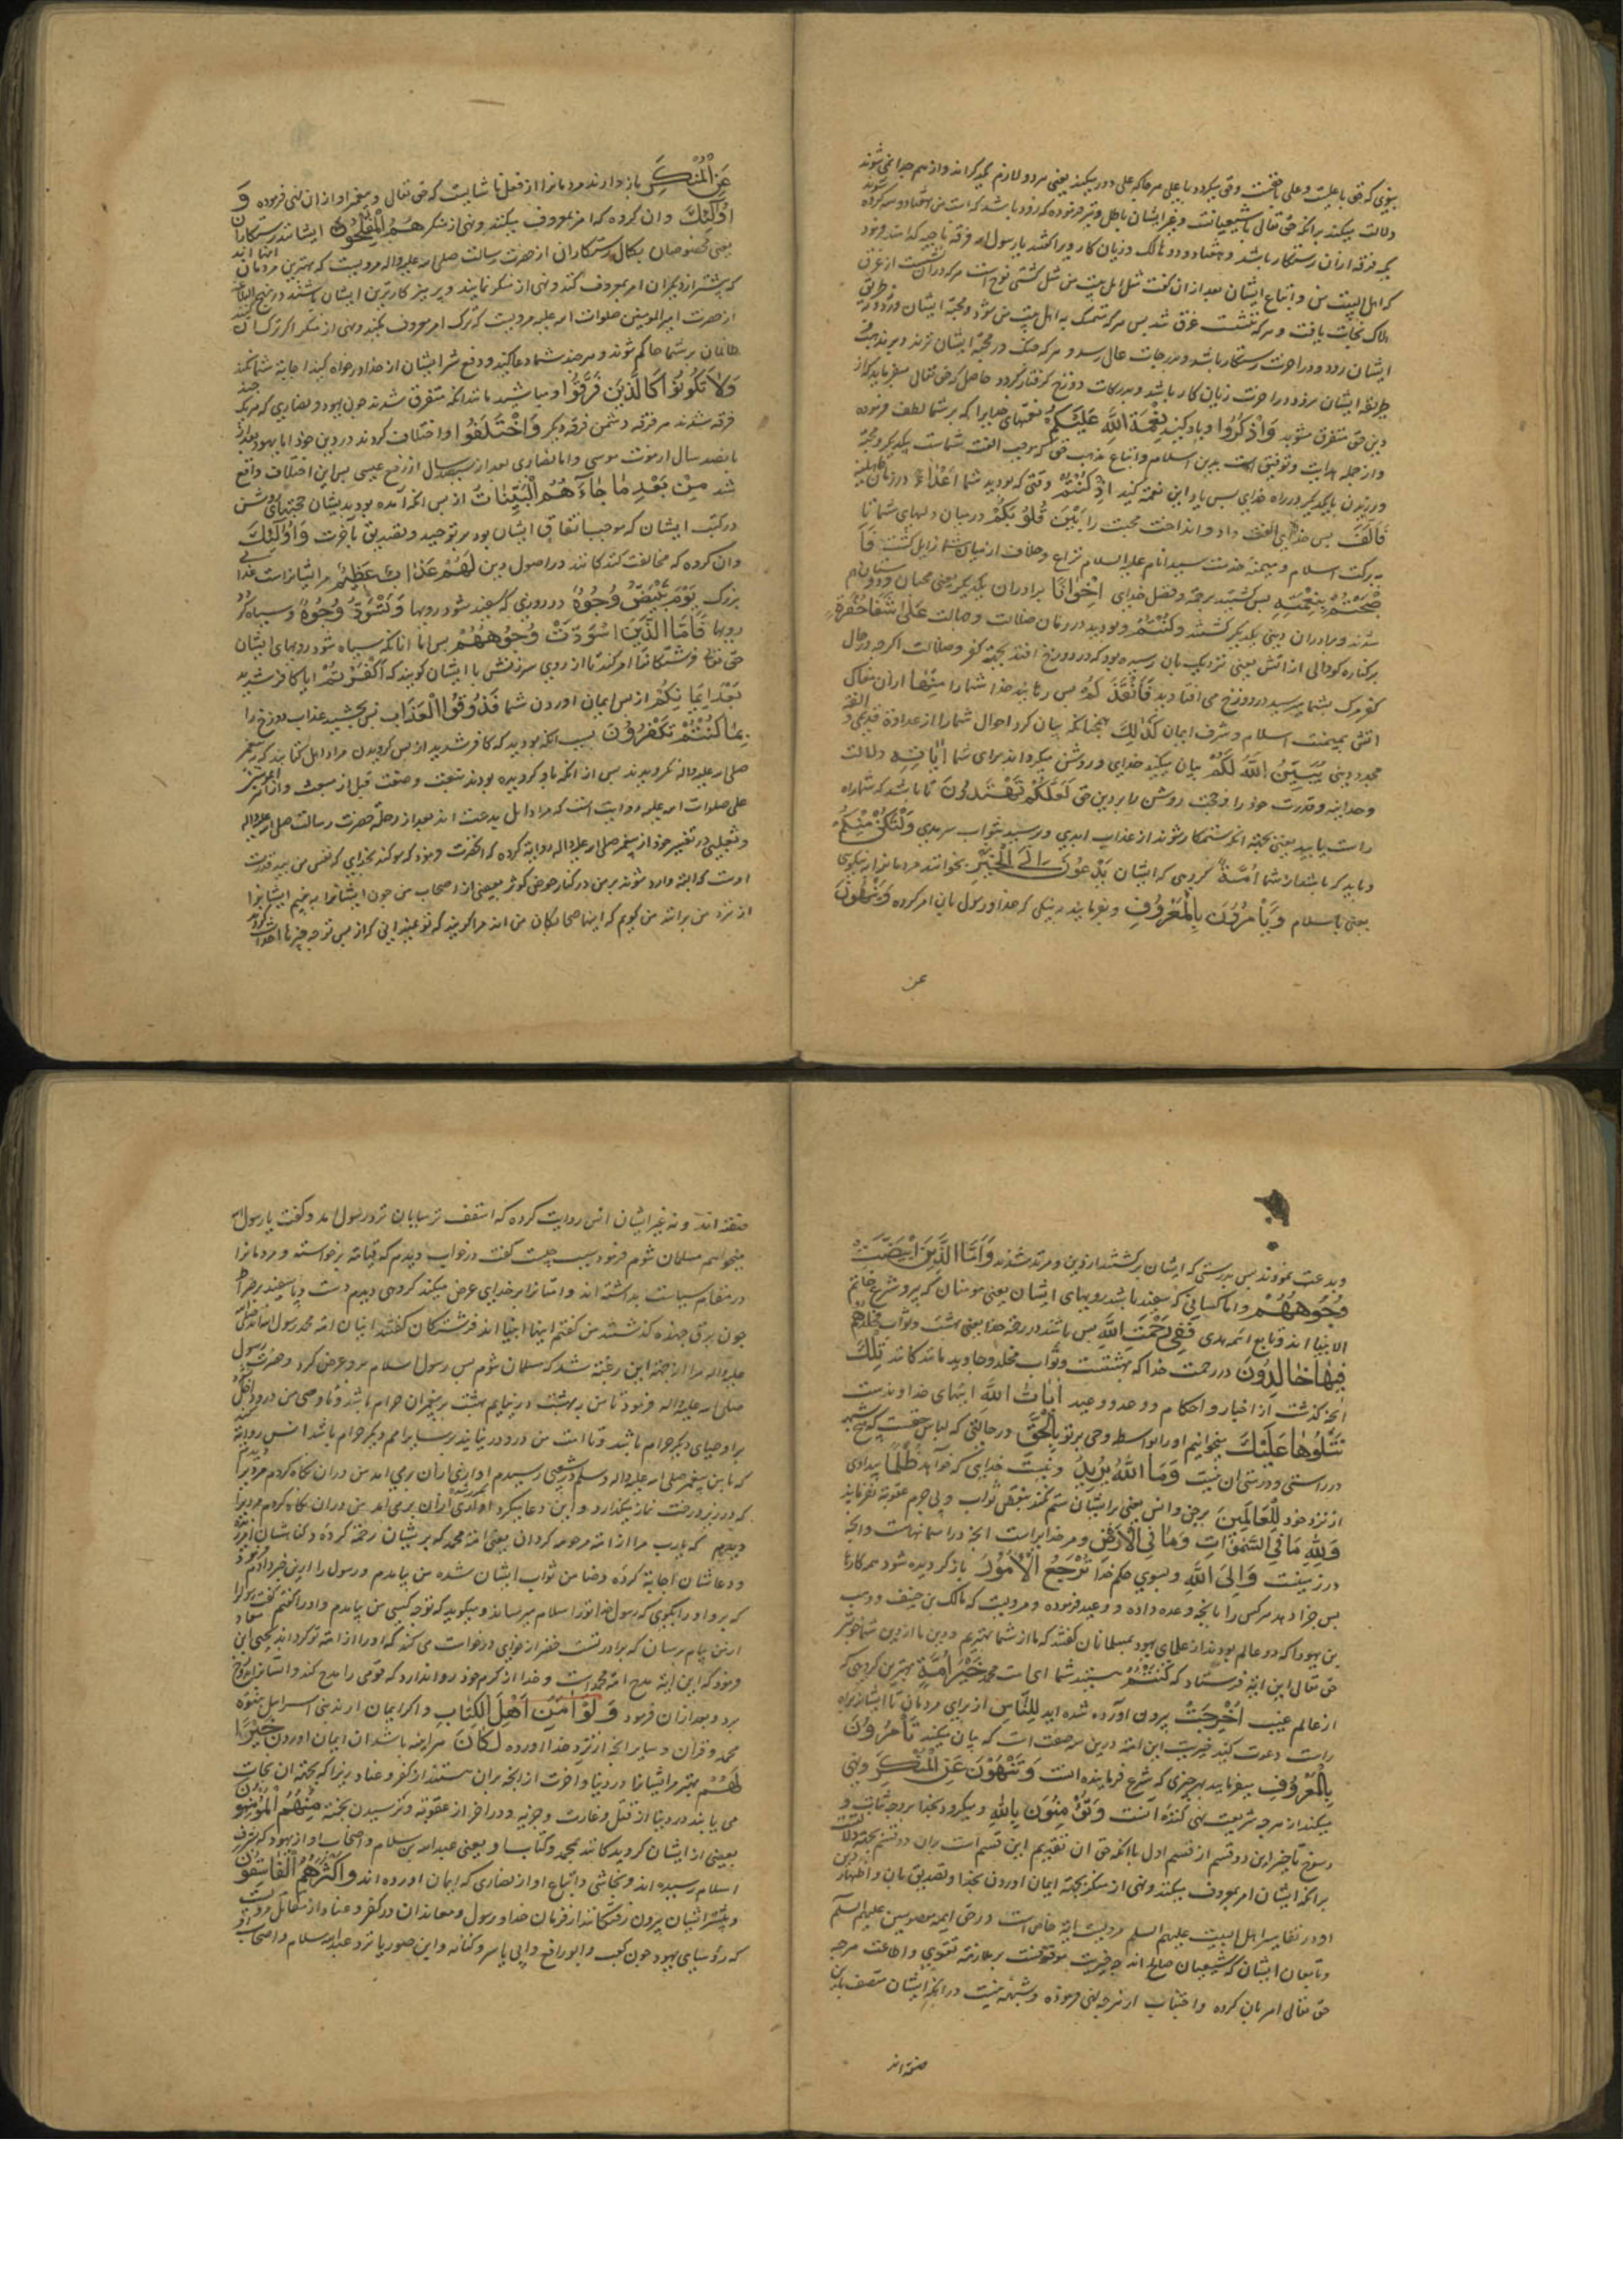 دلالت میکند برانکه حق تعالی با شیعیانست و غیر ایشان باطل
یک فرقه ازان رستکار باشد و هفتاد و دو هالک و زیان کار
که اهل البیت من و اتباع ایشان بعد ازان کفت مثل اهل بیت من مثل کشتی نوح است هرکه دران نشست از غرق
هلاک نجات یافت و هرکه ننشست غرق شد پس هرکه تمسک به اهل بیت من شود و محبة ایشان ورزد و در طریق
ایشان رود در اخرت رستکار باشد و بدرجات عالی رسد و هرکه چنک در محبة ایشان نزند
طریقه ایشان نرود در اخرت زیان کار باشد و بدرکات دوزخ کرفتار کردد حاصل که حق تعالی میفرماید که از
دین حق متفرق مشوید وَاذْكُرُوا و یاد کنید نِعْمَةَ اللَّهِ عَلَيْكُمْ نعمتهای خدایرا که بر شما لطف فرموده
و از جمله هدایت و توفیق است بدین اسلام و اتباع مذهب حق که موجب الفت شماست بیکدیکر و محبة
ورزیدن بایکدیکر در راه خدای پس یاد این نعمة کنید اِذْ كُنْتُمْ وقتی که بودید شما اَعْدَاءً در زمان جاهلیه
فَاَلَّفَ پس خدای الفت داد و انداخت محبت را بَيْنَ قُلُوبِكُمْ در میان دلهای شما تا
به برکت اسلام و میمنة خدمت سید انام علیه السلام نزاع و خلاف از میان شما زایل کشت فَاَ
صْبَحْتُمْ بِنِعْمَتِهِ پس کشتید برحمة و فضل خدای اِخْوَانًا برادران یکدیکر یعنی محبان و دوستان هم
شدند و برادران دینی یکدیکر کشتند وَكُنْتُمْ و بودید در زمان ضلالت و جهالت عَلَىٰ شَفَا حُفْرَةٍ
بر کناره کودالی از اتش یعنی نزدیک بان رسیده بود که در دوزخ افتند بجهة کفر و ضلالت اکر در حال
کفر مرک بشما میرسید در دوزخ می افتادید فَاَنْقَذَكُمْ پس رهانید خدا شما را مِنْهَا ازان مغاک
اتش بمیمنت اسلام و شرف ایمان كَذٰلِكَ همچنانکه بیان کرد احوال شما را از عداوة قدیمی و الفة
مجدد دینی يُبَيِّنُ اللَّهُ لَكُمْ بیان میکند خدای و روشن میکرداند برای شما اٰيَاتِهِ دلالت
وحدانیه و قدرت خود را و حجت روشن را بر دین حق لَعَلَّكُمْ تَهْتَدُونَ تا باشد که شما راه
راست یابید یعنی بجهة انکه رستکار شوند از عذاب ابدی و رسید بثواب سرمدی وَلْتَكُنْ مِنْكُمْ
و باید که باشند از شما اُمَّةٌ کروهی که ایشان يَدْعُونَ اِلَى الْخَيْرِ بخوانند مردمانرا به نیکویی
یعنی باسلام وَيَأْمُرُونَ بِالْمَعْرُوفِ و بفرمایند به نیکی که خدا و رسول بان امر کرده وَيَنْهَوْنَ
عن
عَنِ الْمُنْكَرِ باز دارند مردمانرا از فعل ناشایست که حق تعالی و پیغمبر او ازان نهی فرموده وَ
اُولٰئِكَ وان کروه که امر بمعروف میکنند و نهی از منکر هُمُ الْمُفْلِحُونَ ایشانند رستکاران
یعنی مخصوصان بکمال رستکاری از حضرت رسالت صلی الله علیه واله مرویست که بهترین مردمان
که پیشتر از دیکران امر بمعروف کنند و نهی از منکر نمایند و پرهیز کارترین ایشان باشند در نهج البلاغه
از حضرت امیر المومنین صلوات الله علیه مرویست که ترک امر بمعروف مکنید و نهی از منکر اکر ترک کنید
ظالمان بر شما حاکم شوند و هرچند شما دعا کنید و دفع شر ایشان از خدا درخواه کنید اجابة شما نکند
وَلَا تَكُونُوا كَالَّذِينَ تَفَرَّقُوا و میباشید مانند انانکه متفرق شدند چون یهود و نصاری که هر یک چند
فرقه شدند هر فرقه دشمن فرقه دیکر وَاخْتَلَفُوا و اختلاف کردند در دین خود اما یهود بعد از
پانصد سال از موت موسی و اما نصاری بعد از سیصد سال از رفع عیسی پس این اختلاف واقع
شد مِنْ بَعْدِ مَا جَاءَهُمُ الْبَيِّنَاتُ از پس انکه آمده بود بدیشان حجتهای روشن
در کتب ایشان که موجب اتفاق ایشان بود بر توحید و تصدیق بآخرت وَاُولٰئِكَ
وان کروه که مخالفت کنند کانند در اصول دین لَهُمْ عَذَابٌ عَظِيمٌ مر ایشانراست عذابی
بزرک يَوْمَ تَبْيَضُّ وُجُوهٌ در روزی که سفید شود رویها وَتَسْوَدُّ وُجُوهٌ و سیاه کردد
رویها فَاَمَّا الَّذِينَ اسْوَدَّتْ وُجُوهُهُمْ پس اما انانکه سیاه شود رویهای ایشان
حق تعالی فرشتکانرا امر کند تا از روی سرزنش با ایشان کویند که اَكَفَرْتُمْ ایا کافر شدید
بَعْدَ اِيمَانِكُمْ از پس ایمان اوردن شما فَذُوقُوا الْعَذَابَ پس بچشید عذاب دوزخ را
بِمَا كُنْتُمْ تَكْفُرُونَ بسبب انکه بودید که کافر شدید از پس کرویدن مراد اهل کتابند که به پیغمبر
صلی الله علیه واله نکرویدند پس از انکه باو کرویده بودند
علی صلوات الله علیه روایت است که مراد اهل بدعت اند بعد از رحلة حضرت رسالت صلی الله علیه واله
و ثعلبی در تفسیر خود از پیغمبر صلی الله علیه واله روایة کرده که انحضرت فرمود که سوکند بخدایی که نفس من بید قدرت
اوست که البته وارد شوند بر من در کنار حوض کوثر بعضی از اصحاب من چون ایشانرا به بینم ایشانرا
از نزد من برانند من کویم که اینها اصحابکان من اند مرا کویند که تو نمیدانی که از پس تو چه چیزها احداث کردند
و بدعت نمودند پس بدرستی که ایشان برکشتند از دین و مرتد شدند وَاَمَّا الَّذِينَ ابْيَضَّتْ
وُجُوهُهُمْ و اما کسانی که سفید باشد رویهای ایشان یعنی مومنان که پیرو شرع خاتم
الانبیا اند و تابع ائمه هدی فَفِي رَحْمَتِ اللَّهِ پس باشند در رحمة خدا یعنی بهشت و ثواب مخلد هم
فِيهَا خَالِدُونَ در رحمت خدا که بهشتست و ثواب مخلد و جاوید مانند کانند تِلْكَ
انچه کذشت از اخبار و احکام و وعد و وعید اٰيَاتُ اللَّهِ ایتهای خداوندست
نَتْلُوهَا عَلَيْكَ میخوانیم اورا بواسطه وحی بر تو بِالْحَقِّ در حالتی که لباس حقست که هیچ شبهه
در راستی و درستی ان نیست وَمَا اللَّهُ يُرِيدُ و نیست خدایی که خواهد ظُلْمًا بیدادی
از نزد خود لِلْعَالَمِينَ بر جن و انس یعنی بر ایشان ستم نکند بنقص ثواب و بی جرم عقوبة نفرماید
وَلِلَّهِ مَا فِي السَّمٰوَاتِ وَمَا فِي الْاَرْضِ و مر خدایراست انچه در اسمانهاست و انچه
در زمینست وَاِلَى اللَّهِ و بسوی حکم خدا تُرْجَعُ الْاُمُورُ باز کردیده شود همه کارها
پس جزا دهد هر کس را بانچه وعده داده و وعید فرموده و مرویست که مالک بن ضیف و وهب
بن یهودا که دو عالم بودند از علمای یهود بمسلمانان کفتند که ما از شما بهتریم و دین ما از دین شما خوبتر
حق تعالی این ایة فرستاد که كُنْتُمْ هستید شما ای امت محمد خَيْرَ اُمَّةٍ بهترین کروهی که
از عالم غیب اُخْرِجَتْ بیرون آورده شده اید لِلنَّاسِ از برای مردمان تا ایشانرا براه
راست دعوت کنید خیریت این امة درین سه صفت است که بیان میکند تَأْمُرُونَ
بِالْمَعْرُوفِ میفرمایید بهر چیزی که شرع فرماینده انست وَتَنْهَوْنَ عَنِ الْمُنْكَرِ و نهی
میکنید از هر چه شریعت نهی کننده آنست وَتُؤْمِنُونَ بِاللَّهِ و میکروید بخدا بر وجه ثبات و
رسوخ تاخیر این دو قسم از قسم اول باانکه حق ان تقدیم این قسم است بران دو قسم بجهة دلالت
برانکه ایشان امر بمعروف میکنند و نهی از منکر بجهة ایمان اوردن بخدا و تصدیق بان و اظهار دین
او در تفاسیر اهل البیت علیهم السلم مرویست که این ایة خاص است در حق ائمه معصومین علیهم السلم
و تابعان ایشان که شیعیان صالح اند چه خیریت موقوفست بر ملازمة تقوی و اطاعت هرچه
حق تعالی امر بان کرده و اجتناب از هرچه نهی فرموده و شبهه نیست درانکه ایشان متصف باین
صفة اند
صفة اند و نه غیر ایشان انس روایت کرده که اسقف ترسایان نزد رسول امد و کفت یا رسول الله
میخواهم مسلمان شوم فرمود سبب چیست کفت در خواب دیدم که قیامة برخواسته و مردمانرا
در مقام سیاست بداشته اند و امتانرا بر خدای عرض میکنند کروهی دیدم دست و پا سفید بر صراط
چون برق جهنده کذشتند من کفتم اینها انبیا اند فرشتکان کفتند اینان امة محمد رسول الله اند صلی الله
علیه واله مرا ازین جهة این رغبة شد که مسلمان شوم پس رسول اسلام برو عرض کرد و حضرت رسول
صلی الله علیه واله فرمود تا من به بهشت در نیایم بهشت بر پیغمبران حرام باشد و تا وصی من در نرود
بر اوصیای دیکر حرام باشد و تا امت من در او در نیایند بر سایر امم دیکر حرام باشد انس روایة کند
که با پیغمبر صلی الله علیه واله وسلم در شعبی رسیدم اوازی ازان برمی امد من دران نکاه کردم مردیرا دیدم
که در زیر درخت نماز میکذارد و این دعا میکرد
دیدم که یا رب مرا از امة مرحومه کردان یعنی امة محمد که بریشان رحمة کرده و کناهشان امرزیده
و دعاشان اجابة کرده و ضامن ثواب ایشان شده من بیامدم و رسول را ازین خبر دادم فرمود
که برو او را بکوی که رسول خدا تو را سلام میرساند و میکوید که تو چه کسی من بیامدم و او را کفتم کفت رسولرا
از من پیام برسان که برادرتست خضر از خدای درخواست می کند که او را از امة تو کرداند
فرمود که این ایة مدح امة محمد است و خدا از کرم خود روا ندارد که قومی را مدح کند و ایشانرا بدوزخ
برد و بعد ازان فرمود وَلَوْ اٰمَنَ اَهْلُ الْكِتَابِ و اکر ایمان ارند بنی اسرائیل بنبوة
محمد و قرآن و سایر انچه از نزد خدا اورده لَكَانَ هراینه باشد ان ایمان اوردن خَيْرًا
لَهُمْ بهتر مر ایشانرا در دنیا و آخرت از انچه بران هستند از کفر و عناد زیرا که بجهة ان نجات
می یابند در دنیا از قتل و غارت و جزیه و در اخر از عقوبة مِنْهُمُ الْمُؤْمِنُونَ
بعضی از ایشان کرویده کانند بمحمد و کتاب او یعنی عبد الله بن سلام و اصحاب او از یهود که بشرف
اسلام رسیده اند و نجاشی و اتباع او از نصاری که ایمان اورده اند وَاَكْثَرُهُمُ الْفَاسِقُونَ
و بیشتر ایشان بیرون رفتکانند از فرمان خدا و رسول و معاندان در کفر و عناد از مقاتل مرویست
که رؤسای یهود چون کعب و ابو رافع و ابی یاسر و کنانه و ابن صوریا نزد عبد الله سلام و اصحاب او